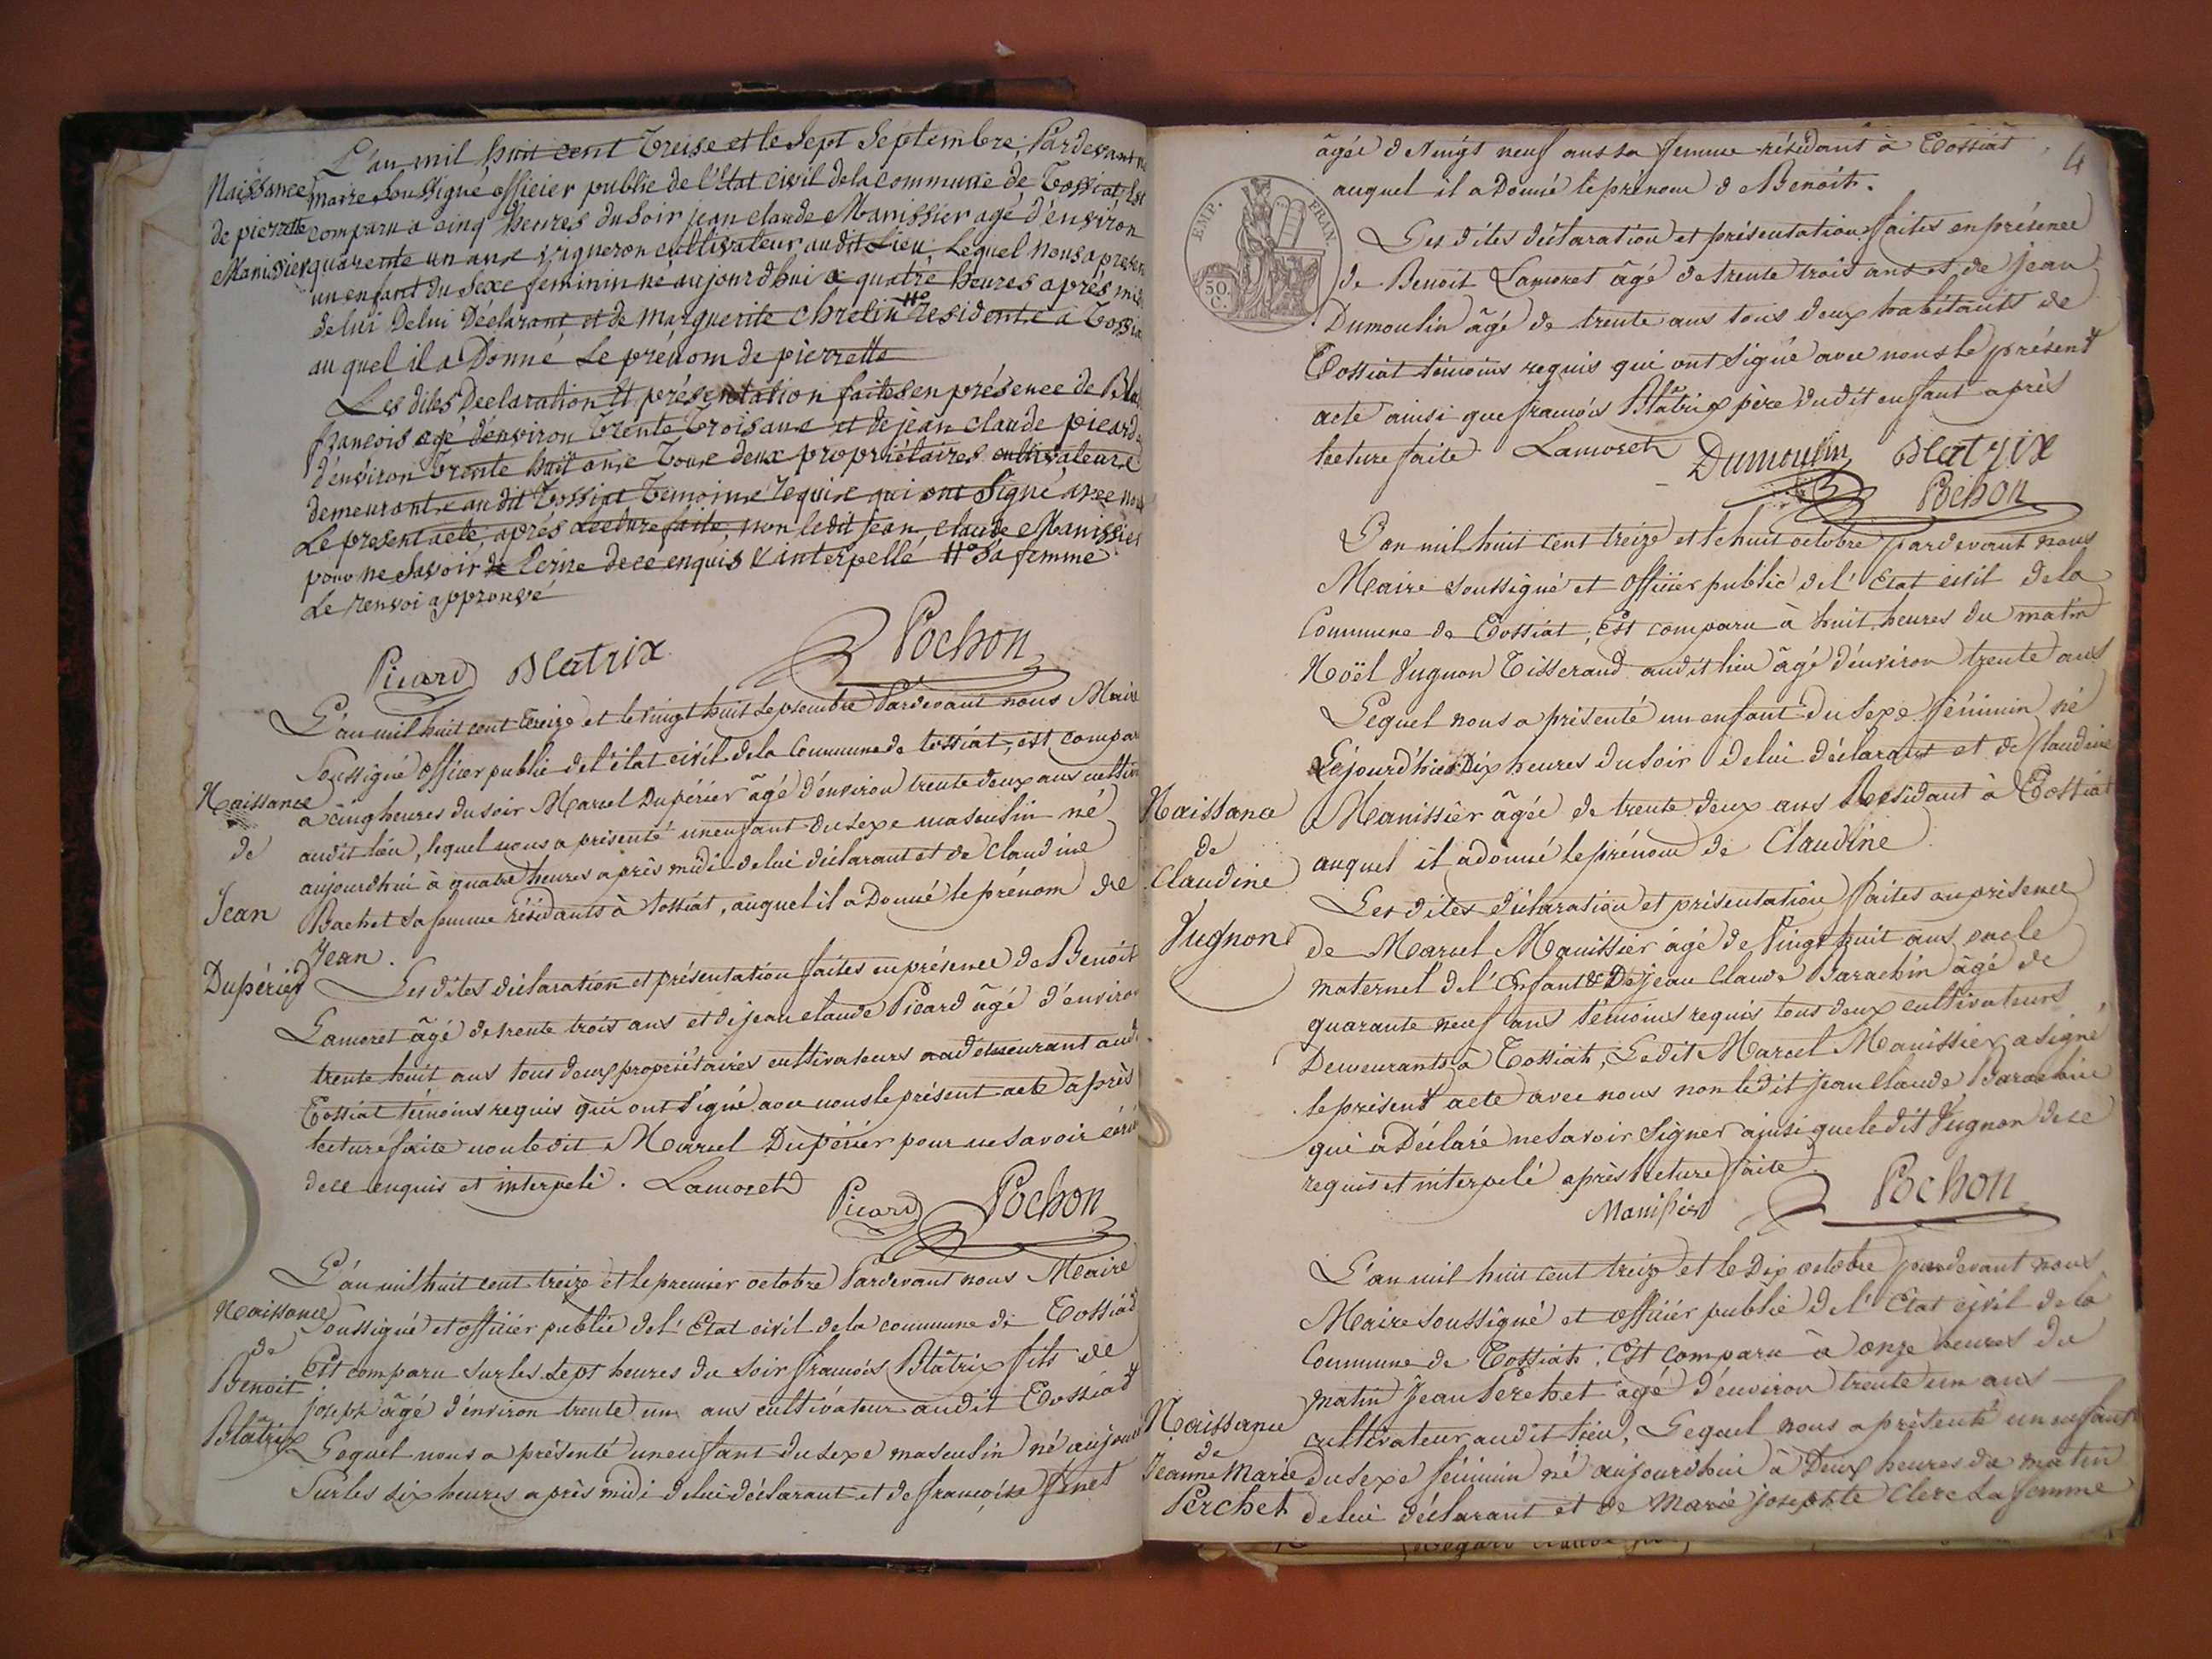 L'an mil huit cent Treise et le Sept Septembre, Pardevant
Naissance maire Soussigné officier public de l'Etat civil de la commune de Tossiat, Est
de pierrette comparu a cinq heures du Soir jean claude Manissier agé d'environ
Manissier quarente un ans vigneron cultivateur au dit Lieu Lequel nous a presen
un enfant du Sexe feminin né aujourdhui a quatre heures aprés mi
de lui Delui Déclarant et de marguerite chrelin #° residente à Tossia
au quel il a Donné Le prénom de pierrette
Les dites Declaration Et présentation faites en présence de
françois agé d'environ Trente Trois ans et de jean claude picard
d'environ Trente huit ans Tous deux propriétaires cultivateurs
demeurant au dit Tossiat Temoins requis qui ont Signé avec nous
Le present acte aprés Lecture faite, non le dit jean claude Manissier
pour ne Savoir de enquis & interpellé #° Sa femme
Le renvoi approuvé
Picard Blatrix Pochon
L'an mil huit cent treize et le vingt huit Septembre Pardevant nous Maire
Soussigné officier public de l'état civil de la Commune de tossiat, est compar
Naissance
à cinq heures du soir Marcel Dupérier âgé d'environ trente deux ans cultiv
de audit lieu, lequel nous a présenté un enfant du sexe masculin né
aujourdhui à quatre heures après midi de lui déclarant et de Claudine
Jean Bachet sa femme résidants à tossiat, auquel il a Donné le prénom de
Jean.
Dupérier Les dites déclaration et présentation faites en présence de Benoit
Lamoret âgé de trente trois ans et de jean claude Picard âgé d'environ
trente huit ans tous deux propriétaires cultivateurs demeurant aud
Tossiat témoins requis qui ont Signé avec nous le présent acte après
lecture faite non le dit Marcel Dupérier pour ne savoir écri
de ce enquis et interpelé. Lamoret Picard Pochon
L'an mil huit cent treize et le premier octobre Pardevant nous Maire
Naissance Soussigné et officier public de l'Etat civil de la commune de Tossiat
de Est comparu sur les Sept heures du soir francois Blâtrix fils de
Benoit joseph âgé d'environ trente un ans cultivateur audit Tossiat
Blâtrix Lequel nous a présenté un enfant du sexe masculin né aujour
Sur les six heures après midi de lui déclarant et de francoise finet
4
âgée de Vingt neuf ans sa femme résidant à Tossiat
auquel il a Donné le prénom de Benoit.
EMP. FRAN.
50 C.
Les dites déclaration et présentation faites en présence
de Benoit Lamoret âgé de trente trois ans et de jean
Dumoulin âgé de trente ans tous deux habitants de
Tossiat témoins requis qui ont Signé avec nous le présent
acte ainsi que francois Blâtrix père dudit enfant après
lecture faite Lamoret Dumoulin Blatrix
Pochon
L'an mil huit cent treize et le huit octobre pardevant nous
Maire Soussigné et officier public de l'Etat civil de la
Commune de Tossiat, Est comparu à huit heures du matin
Noël Vugnon Tisserand audit lieu âgé d'environ trente ans
Lequel nous a présenté un enfant du Sexe féminin né
Le jourd'hier Dix heures du Soir de lui déclarant et de Claudine
Naissance Manissier âgée de trente deux ans Résidant à Tossiat
de auquel il a donné le prénom de Claudine
Claudine Les dites déclaration et présentation faites en présence
Vugnon de Marcel Manissier âgé de Vingt huit ans oncle
maternel de l'Enfant & De jean Claude Barachin âgé de
quarante neuf ans témoins requis tous deux cultivateurs
Demeurants à Tossiat, Ledit Marcel Manissier a signé
le présent acte avec nous non le dit jean Claude Barachin
qui a Déclaré ne savoir Signer ainsi que le dit Vugnon de ce
requis et interpelé après lecture faite.
Manissier Pochon
L'an mil huit cent treize et le Dix octobre pardevant nous
Maire soussigné et officier public de l'Etat civil de la
Commune de Tossiat, Est comparu à onze heures du
matin Jean Perchet âgé d'environ trente un ans
Naissance cultivateur audit lieu, Lequel nous a présenté un enfant
de
Jeanne Marie du sexe féminin né aujourdhui à Deux heures du matin
Perchet de lui déclarant et de Marie josephte Clerc sa femme